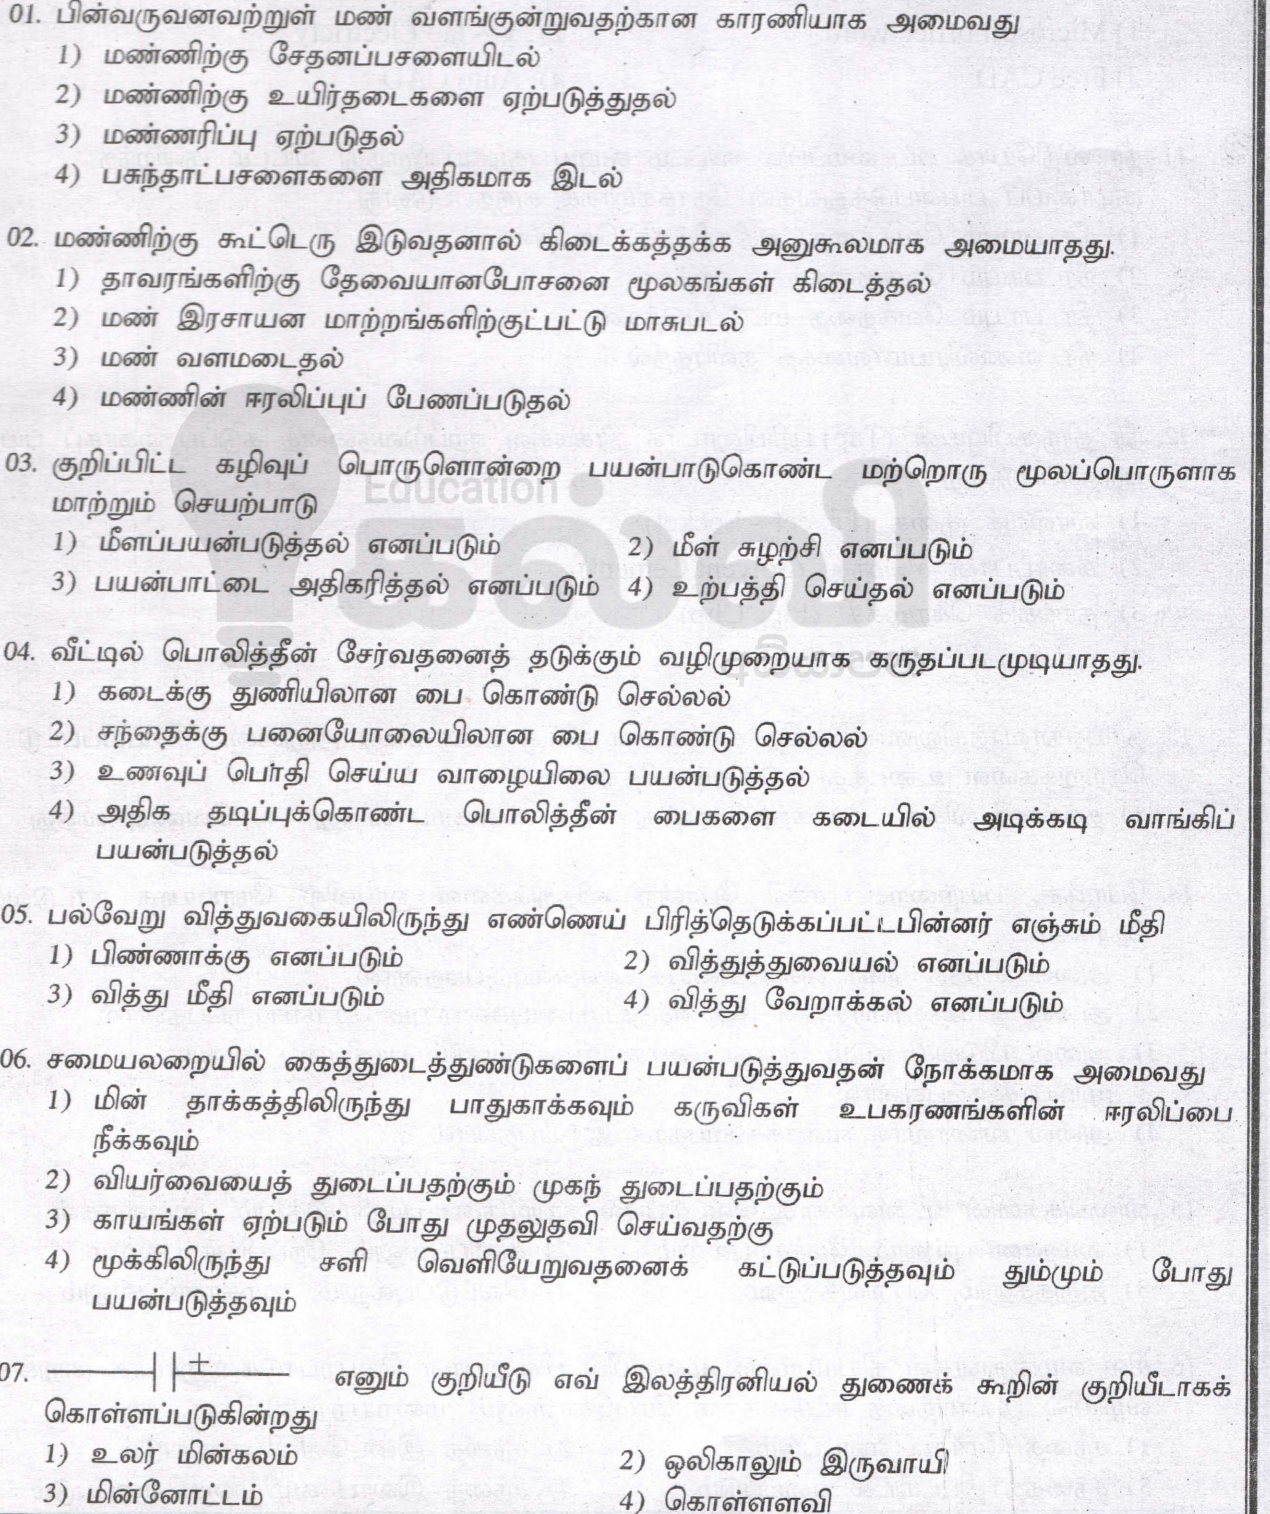 01. பின்வருவனவற்றுள் மண் வளங்குன்றுவதற்கான காரணியாக அமைவது
1) மண்ணிற்கு சேதனப்பசளையிடல்
2) மண்ணிற்கு உயிர்தடைகளை ஏற்படுத்துதல்
3) மண்ணரிப்பு ஏற்படுதல்
4) பசுந்தாட்பசளைகளை அதிகமாக இடல்
02. மண்ணிற்கு கூட்டெரு இடுவதனால் கிடைக்கத்தக்க அனுகூலமாக அமையாதது.
1) தாவரங்களிற்கு தேவையானபோசனை மூலகங்கள் கிடைத்தல்
2) மண் இரசாயன மாற்றங்களிற்குட்பட்டு மாசுபடல்
3) மண் வளமடைதல்
4) மண்ணின் ஈரலிப்புப் பேணப்படுதல்
03. குறிப்பிட்ட கழிவுப் பொருளொன்றை பயன்பாடுகொண்ட மற்றொரு மூலப்பொருளாக
மாற்றும் செயற்பாடு
Education
கல்வி
1) மீளப்பயன்படுத்தல் எனப்படும் 2) மீள் சுழற்சி எனப்படும்
3) பயன்பாட்டை அதிகரித்தல் எனப்படும் 4) உற்பத்தி செய்தல் எனப்படும்
04. வீட்டில் பொலித்தீன் சேர்வதனைத் தடுக்கும் வழிமுறையாக கருதப்படமுடியாதது.
1) கடைக்கு துணியிலான பை கொண்டு செல்லல்
2) சந்தைக்கு பனையோலையிலான பை கொண்டு செல்லல்
3) உணவுப் பொதி செய்ய வாழையிலை பயன்படுத்தல்
4) அதிக தடிப்புக்கொண்ட பொலித்தீன் பைகளை கடையில் அடிக்கடி வாங்கிப்
பயன்படுத்தல்
05. பல்வேறு வித்துவகையிலிருந்து எண்ணெய் பிரித்தெடுக்கப்பட்டபின்னர் எஞ்சும் மீதி
1) பிண்ணாக்கு எனப்படும் 2) வித்துத்துவையல் எனப்படும்
3) வித்து மீதி எனப்படும் 4) வித்து வேறாக்கல் எனப்படும்
06. சமையலறையில் கைத்துடைத்துண்டுகளைப் பயன்படுத்துவதன் நோக்கமாக அமைவது
1) மின் தாக்கத்திலிருந்து பாதுகாக்கவும் கருவிகள் உபகரணங்களின் ஈரலிப்பை
நீக்கவும்
2) வியர்வையைத் துடைப்பதற்கும் முகந் துடைப்பதற்கும்
3) காயங்கள் ஏற்படும் போது முதலுதவி செய்வதற்கு
4) மூக்கிலிருந்து சளி வெளியேறுவதனைக் கட்டுப்படுத்தவும் தும்மும் போது
பயன்படுத்தவும்
07. + எனும் குறியீடு எவ் இலத்திரனியல் துணைக் கூறின் குறியீடாகக்
கொள்ளப்படுகின்றது
1) உலர் மின்கலம் 2) ஒலிகாலும் இருவாயி
3) மின்னோட்டம் 4) கொள்ளளவி